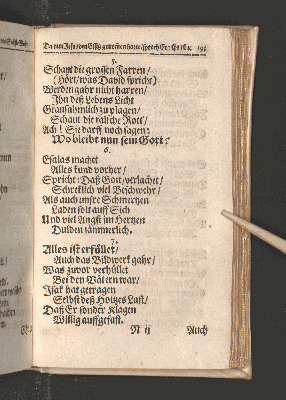 Da nun Jesus den Essig getruncken hatte/ sprach Er: Es ist 195
5.
Schaut die grossen Farren/
(Hört/ was David spricht)
Werden gahr nicht harren/
Ihn deß Lebens Licht
Grausahmlich zu plagen/
Schaut die falsche Rott/
Ach! Sie darff noch sagen:
Wo bleibt nun sein Gott?
6.
Esaias machet
Alles kund vorher/
Spricht: Daß Gott verlachet/
Schreklich viel Beschwehr/
Als auch unsre Schmertzen
Laden solt auff Sich
Und viel Angst im Hertzen
Dulden jämmerlich.
7.
Alles ist erfüllet/
Auch das Bildwerk gahr/
Was zuvor verhüllet
Bei den Vätern war/
Isak hat getragen
Selbst deß Holtzes Last/
Daß Er sonder Klagen
Willig auffgefast.
N ij Auch